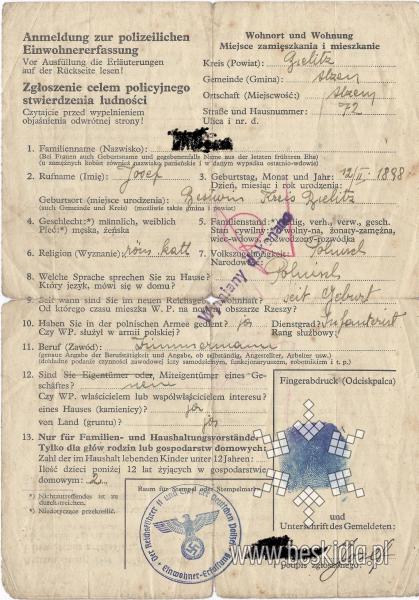 Anmeldung zur polizeilichen
Einwohnererfassung
Vor Ausfüllung die Erläuterungen
auf der Rückseite lesen!
Zgłoszenie celem policyjnego
stwierdzenia ludności
Czytajcie przed wypełnieniem
objaśnienia odwrótnej strony!
Wohnort und Wohnung
Miejsce zamięszkania i mieszkanie
Kreis (Powiat): Bielitz
Gemeinde (Gmina): Alzen
Ortschaft (Miejscwość): Alzen
Straße und Hausnummer: 72
Ulica i nr. d.
1. Familienname (Nazwisko):
(Bei Frauen auch Geburtsname und gegebenenfalls Name aus der letzten früheren Ehe)
(u zamężnych kobiet również nazwisko panieńskie i w danym wypadku ostatnie-wdowie)
2. Rufname (Imię): Josef
3. Geburtstag, Monat und Jahr: 12/II. 1898
Dzień, miesiąc i rok urodzenia:
Geburtsort (miejsce urodzenia): Kreis Bielitz
(auch Gemeinde und Kreis) (możliwie także gmina i powiat)
4. Geschlecht:*) männlich, weiblich
Płeć:*) męska, żeńska
5. Familienstand:*) ledig, verh., verw., gesch.
Stan cywilny: wolny-na, żonaty-zamężna,
wiec-wdowa, rozwiedziony-rozwódja
6. Religion (Wyznanie): röm. kath
7. Volkszugehörigkeit: Polnisch
Narodowość:
8. Welche Sprache sprechen Sie zu Hause? Polnisch
Który język, mówi się w domu?
9. Seit wann sind Sie im neuen Reichsgebiet wohnhaft? seit Geburt
Od którego czasu mieszka W. P. na nowym obszarze Rzeszy?
10. Haben Sie in der polnischen Armee gedient? ja Dienstgrad: Infanterist
Czy WP. służył w armii polskiej? Rang służbowy:
11. Beruf (Zawód): Zimmermann
(genaue Angabe der Berufstätigkeit und Angabe, ob selbständig, Angestellter, Arbeiter usw.)
(dokładne podanie czynności zawodowej czy samodzielnym, funkcjonaryuszem, robotnikim i t. p.)
12. Sind Sie Eigentümer oder, Miteigentümer eines Ge-
schäftes? nein
Czy WP. właścicielem lub wspówłwłaścicielem interesu?
eines Hauses (kamienicy)? ja
von Land (gruntu)? ja
13. Nur für Familien- und Haushaltungsvorstände:
Tylko dla głów rodzin lub gospodarstw domowych:
Zahl der im Haushalt lebenden Kinder unter 12 Jahren:
Ilość dzieci poniżej 12 lat żyjących w gospodarstwie
domowym: 2
*) Nichtzutreffendes ist zu
durch-streichen.
*) Niedotyczące przekreślić.
Raum für Stempel oder Stempelmarke
Der Reichsführer SS und Chef der Deutschen Polizei
• Einwohner-Erfassung •
Fingerabdruck (Odciskpalca)
und
Unterschrift des Gemeldeten:
popis zgłoszonego:
Josef
Wydany dokument
www.beskidia.pl